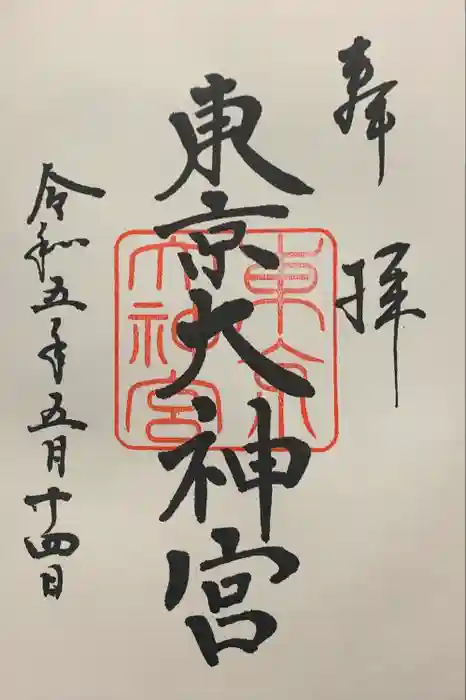 奉拝
東京大神宮
東京
大神宮
令和五年五月十四日